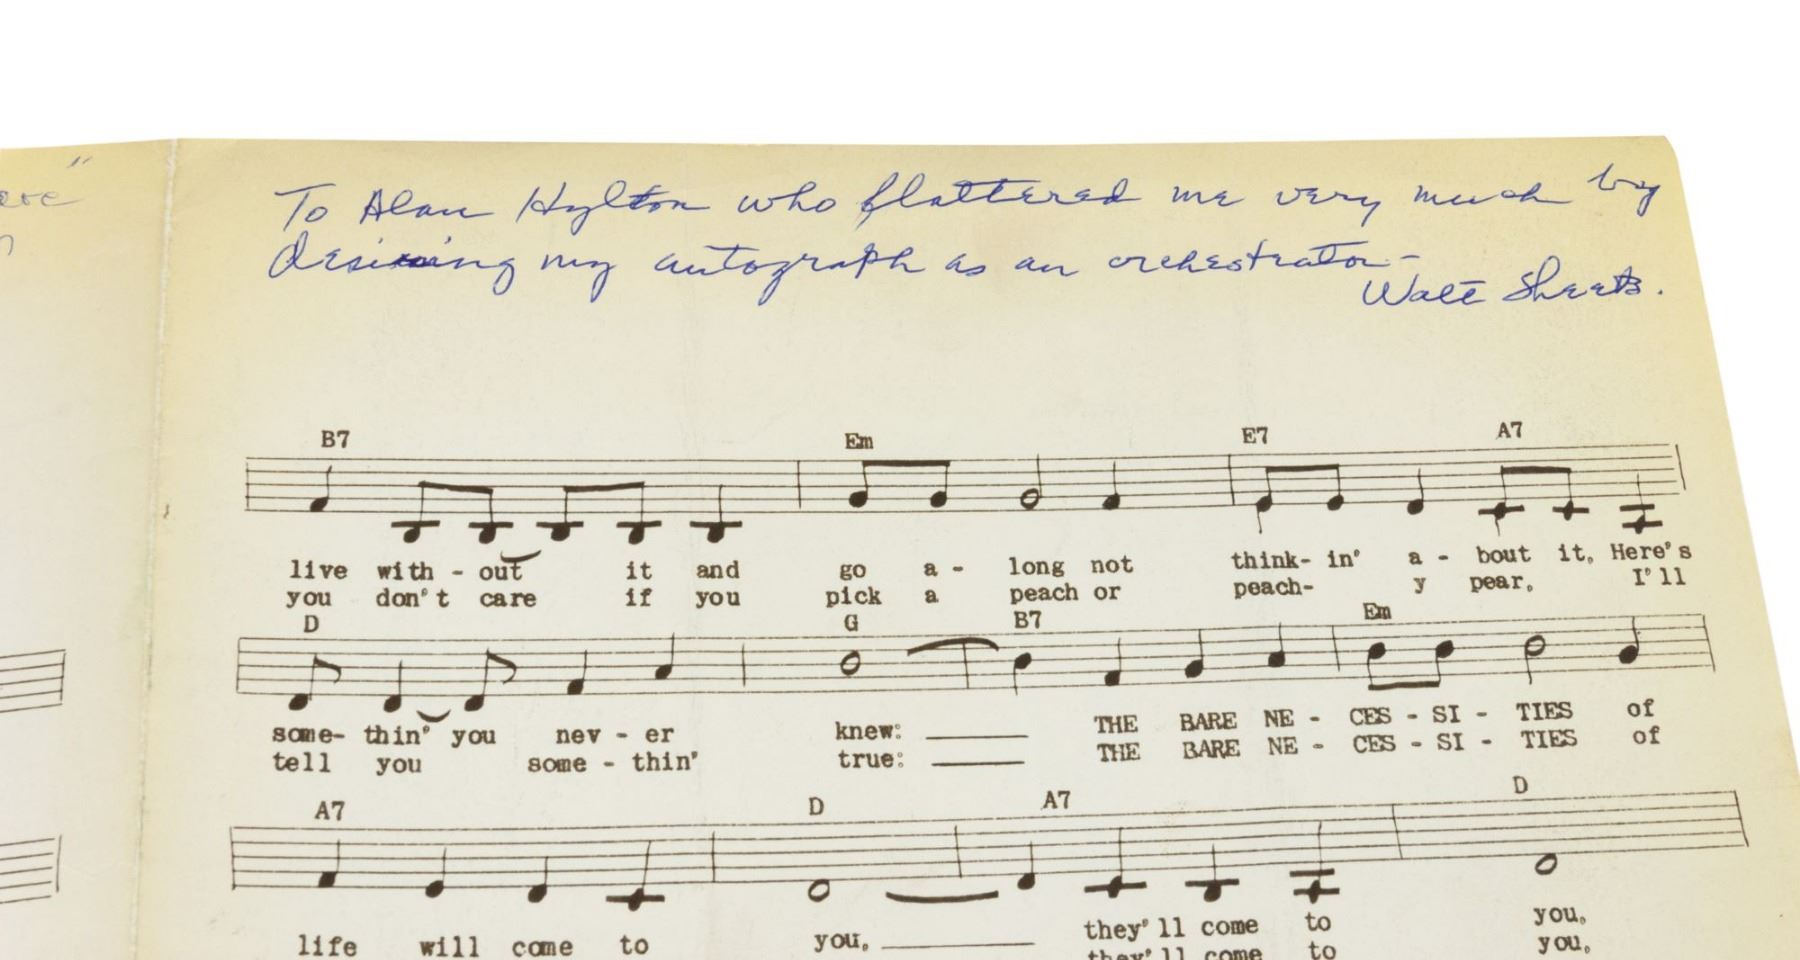 To Alan Hylton who flattered me very much by
desiring my autograph as an orchestrator-
Walt Sheets.
B7 Em E7 A7
live with - out it and go a - long not think- in' a - bout it, Here's
you don't care if you pick a peach or peach- y pear, I'll
D G B7 Em
some- thin' you nev - er knew: THE BARE NE - CES - SI - TIES of
tell you some - thin' true: THE BARE NE - CES - SI - TIES of
A7 D A7 D
life will come to you, they'll come to you.
they'll come to you.